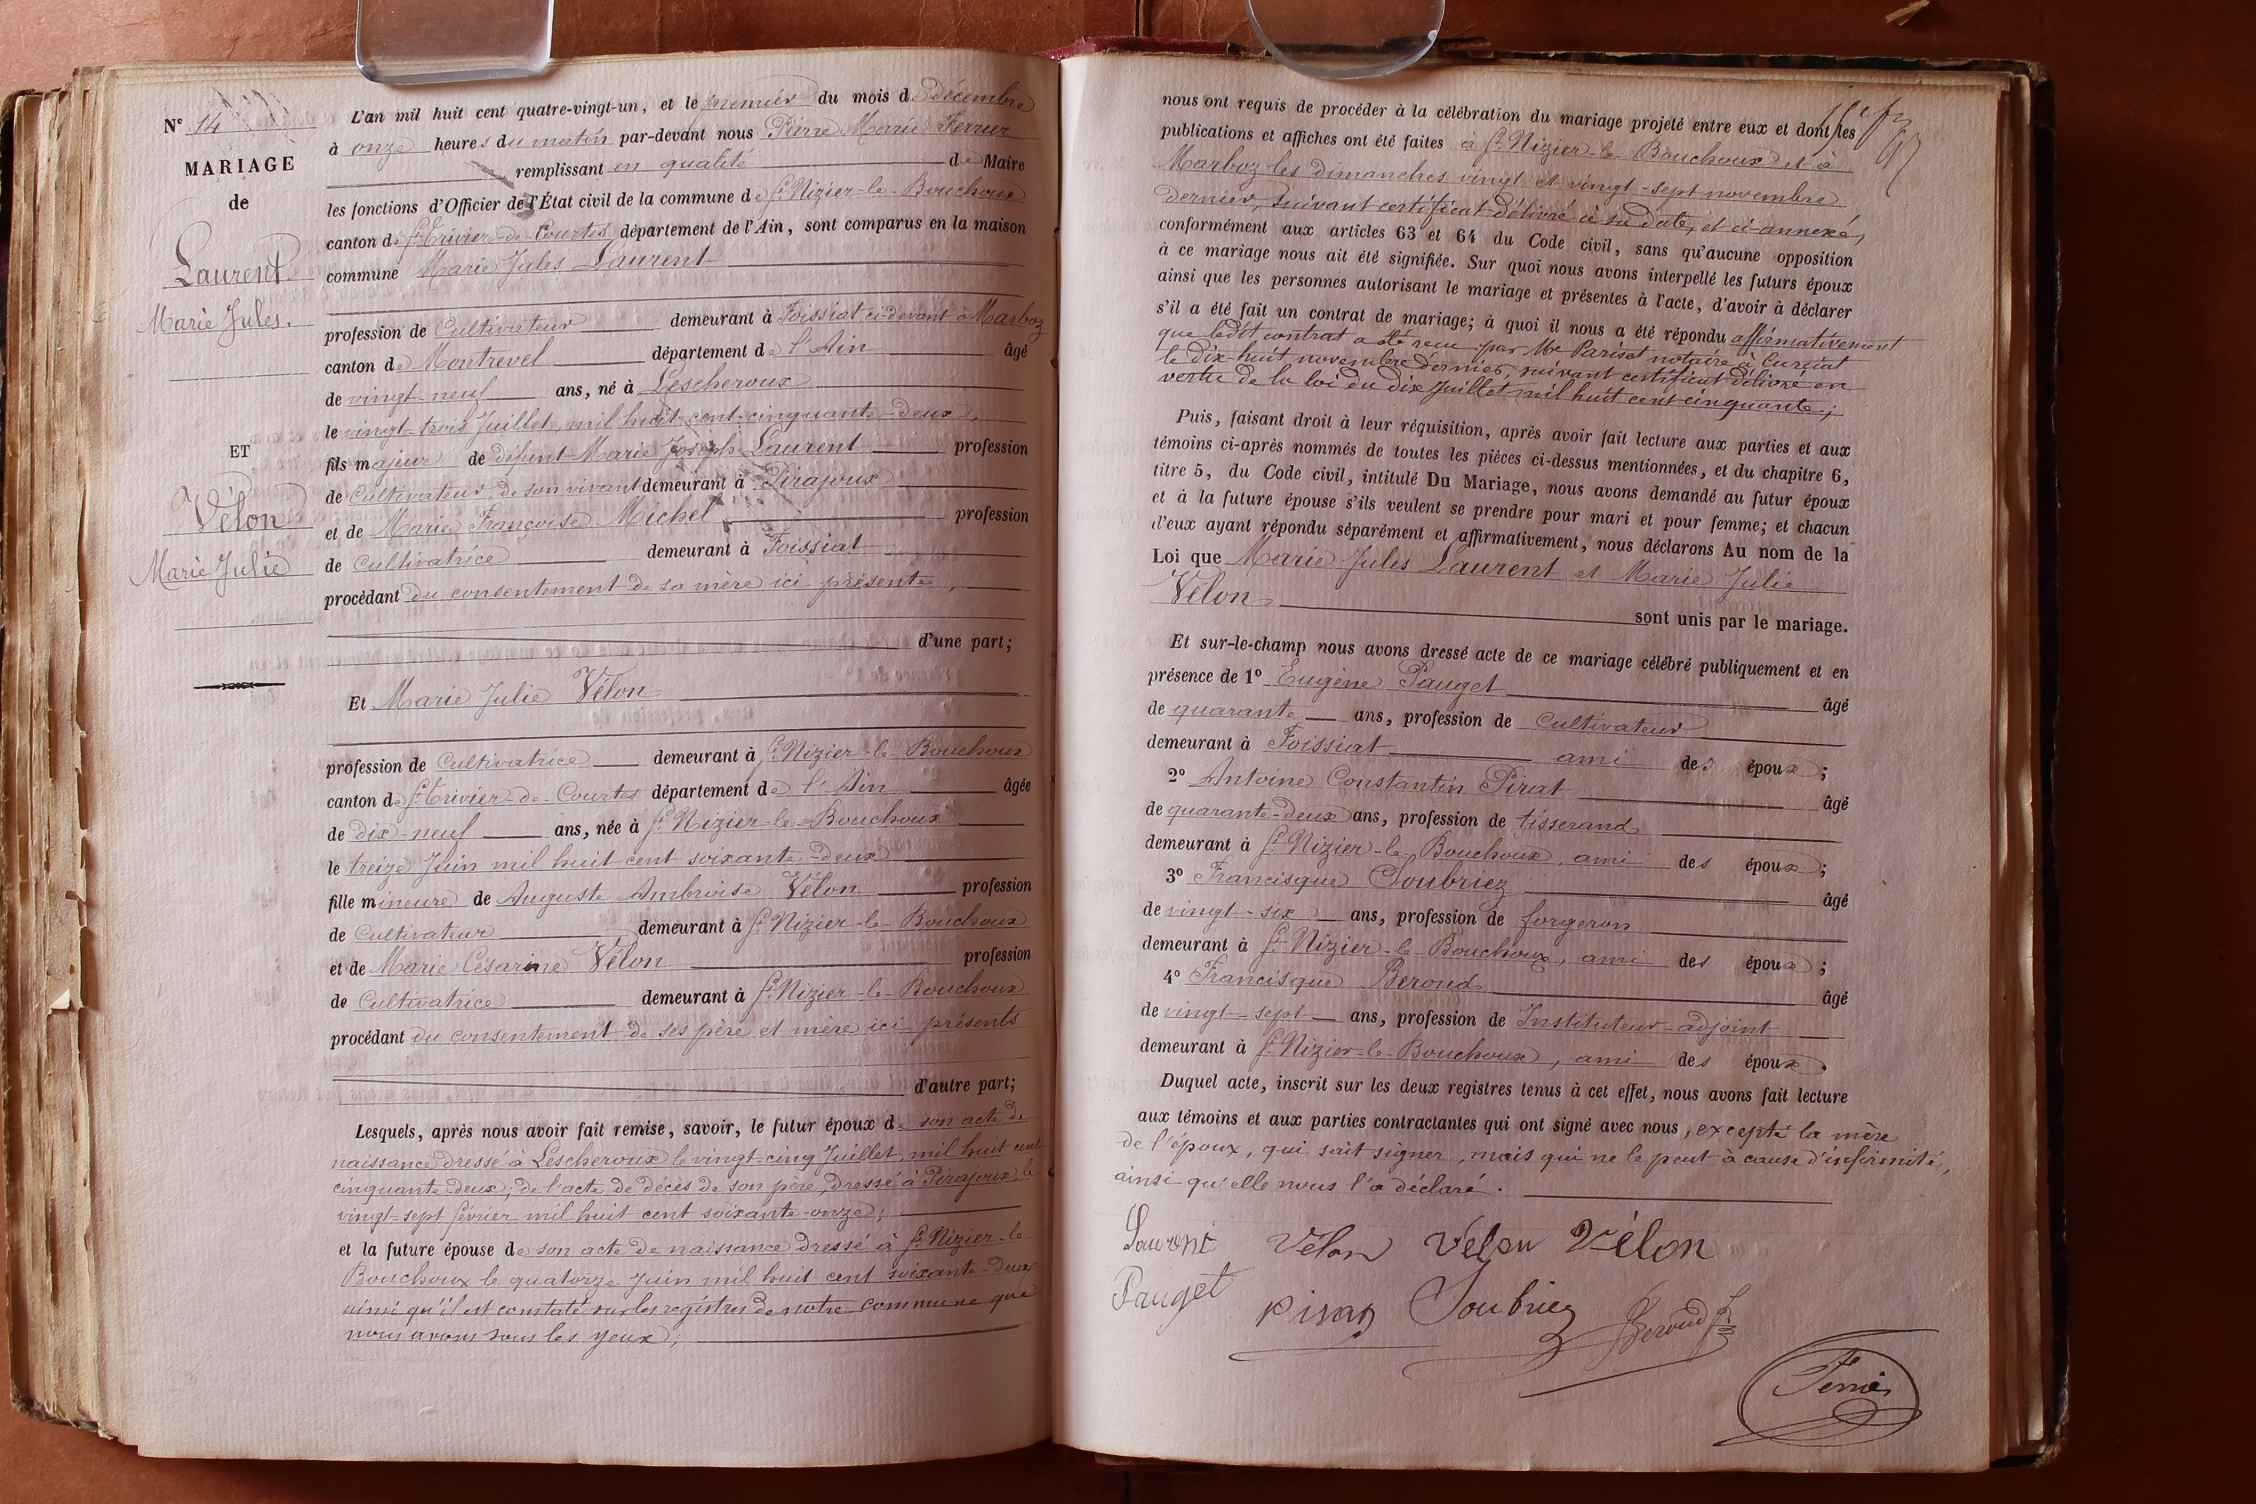 Nº 14
MARIAGE
de
Laurent
Marie Jules.
ET
Vélon
Marie Julie
L'an mil huit cent quatre-vingt-un, et le premier du mois d Décembre
à onze heures du matin par-devant nous Pierre Marie Ferrier
remplissant en qualité de Maire
les fonctions d'Officier de l'État civil de la commune de St Nizier-le-Bouchoux
canton de St Trivier-de-Courtes département de l'Ain, sont comparus en la maison
commune Marie Jules Laurent
profession de Cultivateur demeurant à Foissiat ci-devant à Marboz
canton de Montrevel département de l'Ain âgé
de vingt-neuf ans, né à Lescheroux
le vingt-trois Juillet, mil huit cent cinquante-deux,
fils majeur de défunt Marie Joseph Laurent profession
de Cultivateur de son vivant demeurant à Pirajoux
et de Marie Françoise Michel profession
de Cultivatrice demeurant à Foissiat
procédant du consentement de sa mère ici présente,
d'une part;
Et Marie Julie Vélon
profession de Cultivatrice demeurant à St Nizier-le-Bouchoux
canton de St Trivier-de-Courtes département de l'Ain âgée
de dix-neuf ans, née à St Nizier-le-Bouchoux
le treize Juin mil huit cent soixante-deux
fille mineure de Auguste Ambroise Vélon profession
de Cultivateur demeurant à St Nizier-le-Bouchoux
et de Marie Césarine Vélon profession
de Cultivatrice demeurant à St Nizier-le-Bouchoux
procédant du consentement de ses père et mère ici présents
d'autre part;
Lesquels, après nous avoir fait remise, savoir, le futur époux de son acte de
naissance dressé à Lescheroux le vingt-cinq Juillet, mil huit cent
cinquante deux; de l'acte de décès de son père, dressé à Pirajoux le
vingt-sept février mil huit cent soixante-onze;
et la future épouse de son acte de naissance dressé à St Nizier-le
Bouchoux le quatorze Juin mil huit cent soixante-deux
ainsi qu'il est constaté sur les registres de notre commune que
nous avons sous les yeux;
nous ont requis de procéder à la célébration du mariage projeté entre eux et dont les
publications et affiches ont été faites à St Nizier-le-Bouchoux et à
Marboz les dimanches vingt et vingt-sept novembre
dernier, suivant certificat délivré à sa date, et ci-annexé,
conformément aux articles 63 et 64 du Code civil, sans qu'aucune opposition
à ce mariage nous ait été signifiée. Sur quoi nous avons interpellé les futurs époux
ainsi que les personnes autorisant le mariage et présentes à l'acte, d'avoir à déclarer
s'il a été fait un contrat de mariage; à quoi il nous a été répondu affirmativement
que ledit contrat a été reçu par Me Parisot notaire à Curciat
le dix-huit novembre dernier, suivant certificat délivré en
vertu de la loi du dix Juillet mil huit cent cinquante;
Puis, faisant droit à leur réquisition, après avoir fait lecture aux parties et aux
témoins ci-après nommés de toutes les pièces ci-dessus mentionnées, et du chapitre 6,
titre 5, du Code civil, intitulé Du Mariage, nous avons demandé au futur époux
et à la future épouse s'ils veulent se prendre pour mari et pour femme; et chacun
d'eux ayant répondu séparément et affirmativement, nous déclarons Au nom de la
Loi que Marie Jules Laurent et Marie Julie
Vélon
sont unis par le mariage.
Et sur-le-champ nous avons dressé acte de ce mariage célébré publiquement et en
présence de 1º Eugène Pauget âgé
de quarante ans, profession de Cultivateur
demeurant à Foissiat ami des époux;
2º Antoine Constantin Pirat âgé
de quarante-deux ans, profession de tisserand
demeurant à St Nizier-le-Bouchoux, ami des époux;
3º Francisque Soubriez âgé
de vingt-six ans, profession de forgeron
demeurant à St Nizier-le-Bouchoux, ami des époux;
4º Francisque Beroud âgé
de vingt-sept ans, profession de Instituteur-adjoint
demeurant à St Nizier-le-Bouchoux, ami des époux.
Duquel acte, inscrit sur les deux registres tenus à cet effet, nous avons fait lecture
aux témoins et aux parties contractantes qui ont signé avec nous, excepté la mère
de l'époux, qui sait signer, mais qui ne le peut à cause d'infirmité,
ainsi qu'elle nous l'a déclaré.
Laurent Vélon Vélon Vélon
Pauget Pirat Soubriez Beroud
Ferrier